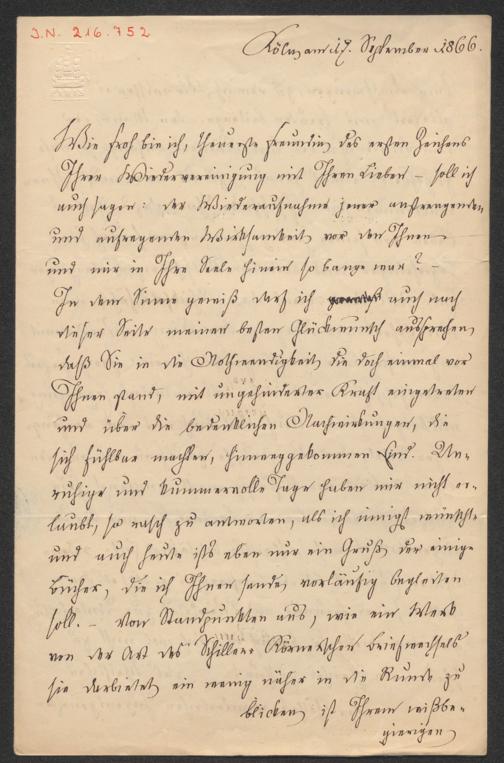 J.N. 216.752
PARIS
Köln, am 17. September 1866.
Wie froh bin ich, theuerste Freundin, des ersten Zeichens
Ihrer Wiedervereinigung mit Ihren Lieben – soll ich
auch sagen: der Wiederaufnahme jener anstrengenden
und aufregenden Wirksamkeit, vor der Ihnen
und mir in Ihre Seele hinein so bange war? –
In dem Sinne gewiß darf ich auch nach
dieser Seite meinen besten Glückwunsch aussprechen,
daß Sie in die Nothwendigkeit, die doch einmal vor
Ihnen stand, mit ungehinderter Kraft eingetreten
und über die bedenklichen Nachwirkungen, die
sich fühlbar machten, hinweggekommen sind. Un-
ruhige und kummervolle Tage haben mir nicht er-
laubt, so rasch zu antworten, als ich innigst wünschte
und auch heute ist's eben nur ein Gruß, der einige
Bücher, die ich Ihnen sende, vorläufig begleiten
soll. – Von Standpunkten aus, wie ein Werk
von der Art des Schiller-Körnerschen Briefwechsels
sie darbietet, ein wenig näher in die Runde zu
blicken, ist Ihrem wißbe-
gierigen